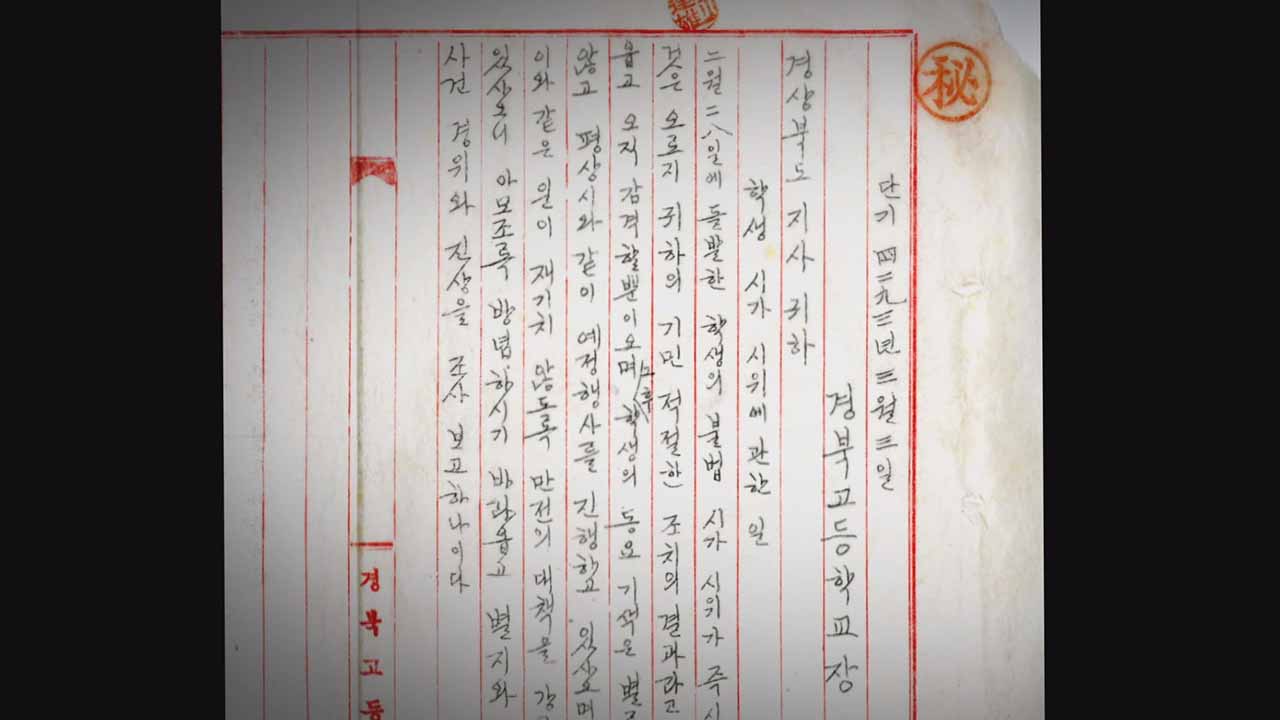 秘
단기 四二九三년 三월 三일
경북고등학교장
경상북도 지사 귀하
학생 시가 시위에 관한 일
二월 二八일에 돌발한 학생의 불법 시가 시위가 즉시
것은 오로지 귀하의 기민 적절한 조치의 결과라고
믑고 오직 감격할뿐이오며 그후 학생의 동요 기색은 별로
않고 평상시와 같이 예정행사를 진행하고 있사오며
이와 같은 일이 재기치 않도록 만전의 대책을
있사오니 아모조록 방념하시기 바라옵고 별지와
사건 경위와 진상을 조사 보고하나이다
경북고등